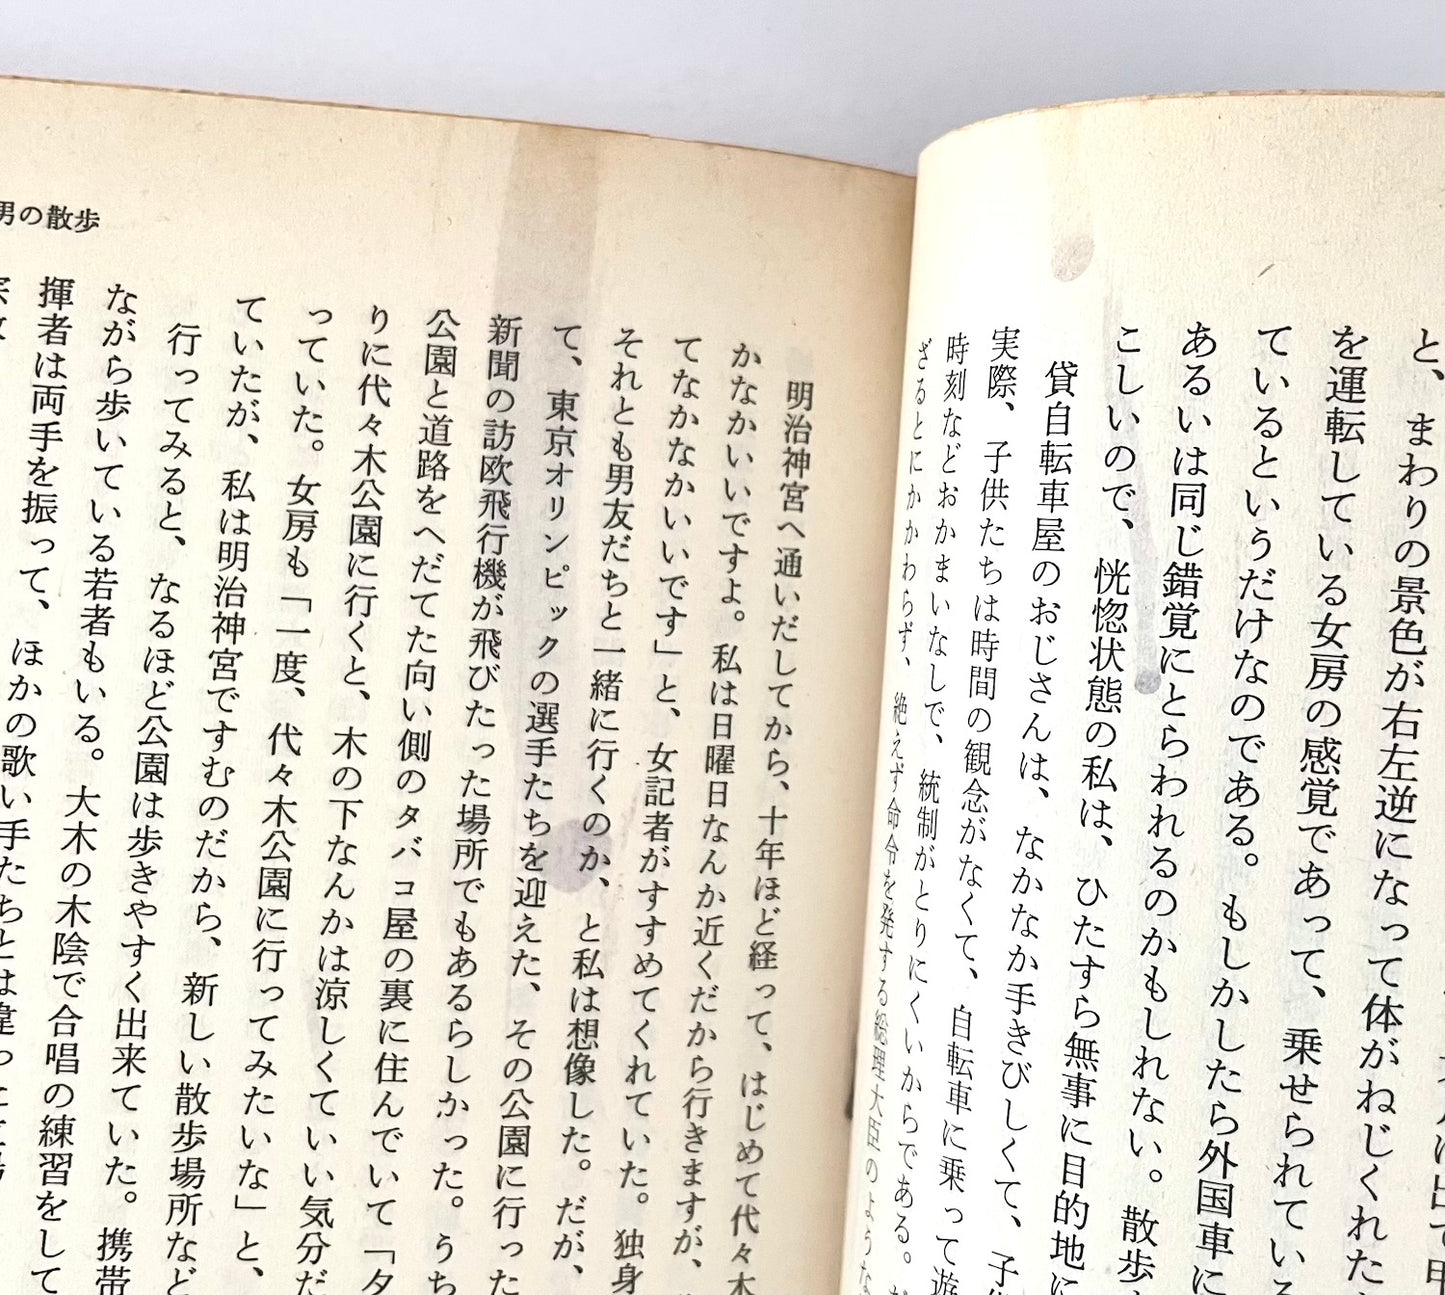 と、まわりの景色が右左逆になって体がねじくれた
を運転している女房の感覚であって、乗せられている
ているというだけなのである。もしかしたら外国車に
あるいは同じ錯覚にとらわれるのかもしれない。散歩
こしいので、恍惚状態の私は、ひたすら無事に目的地に
貸自転車屋のおじさんは、なかなか手きびしくて、子
実際、子供たちは時間の観念がなくて、自転車に乗って遊
時刻などおかまいなしで、統制がとりにくいからである。
ざるとにかかわらず、絶えず命令を発する総理大臣のような
男の散歩
明治神宮へ通いだしてから、十年ほど経って、はじめて代々木
かなかいいですよ。私は日曜日なんか近くだから行きますが、
てなかなかいいです」と、女記者がすすめてくれていた。独身
それとも男友だちと一緒に行くのか、と私は想像した。だが、
て、東京オリンピックの選手たちを迎えた、その公園に行った
新聞の訪欧飛行機が飛びたった場所でもあるらしかった。うち
公園と道路をへだてた向い側のタバコ屋の裏に住んでいて「夕
りに代々木公園に行くと、木の下なんかは涼しくていい気分だ
っていた。女房も「一度、代々木公園に行ってみたいな」と、
ていたが、私は明治神宮ですむのだから、新しい散歩場所など
行ってみると、なるほど公園は歩きやすく出来ていた。携帯
ながら歩いている若者もいる。大木の木陰で合唱の練習をして
揮者は両手を振って、ほかの歌い手たちとは違った